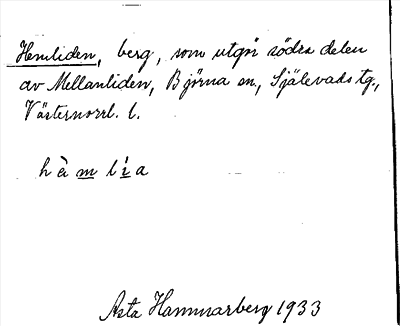 Hemliden, berg, som utgör södra delen
av Mellanliden, Björna sn., Själevads tg.,
Västernorrl. l.
hὲmlia
Asta Hammarberg 1933